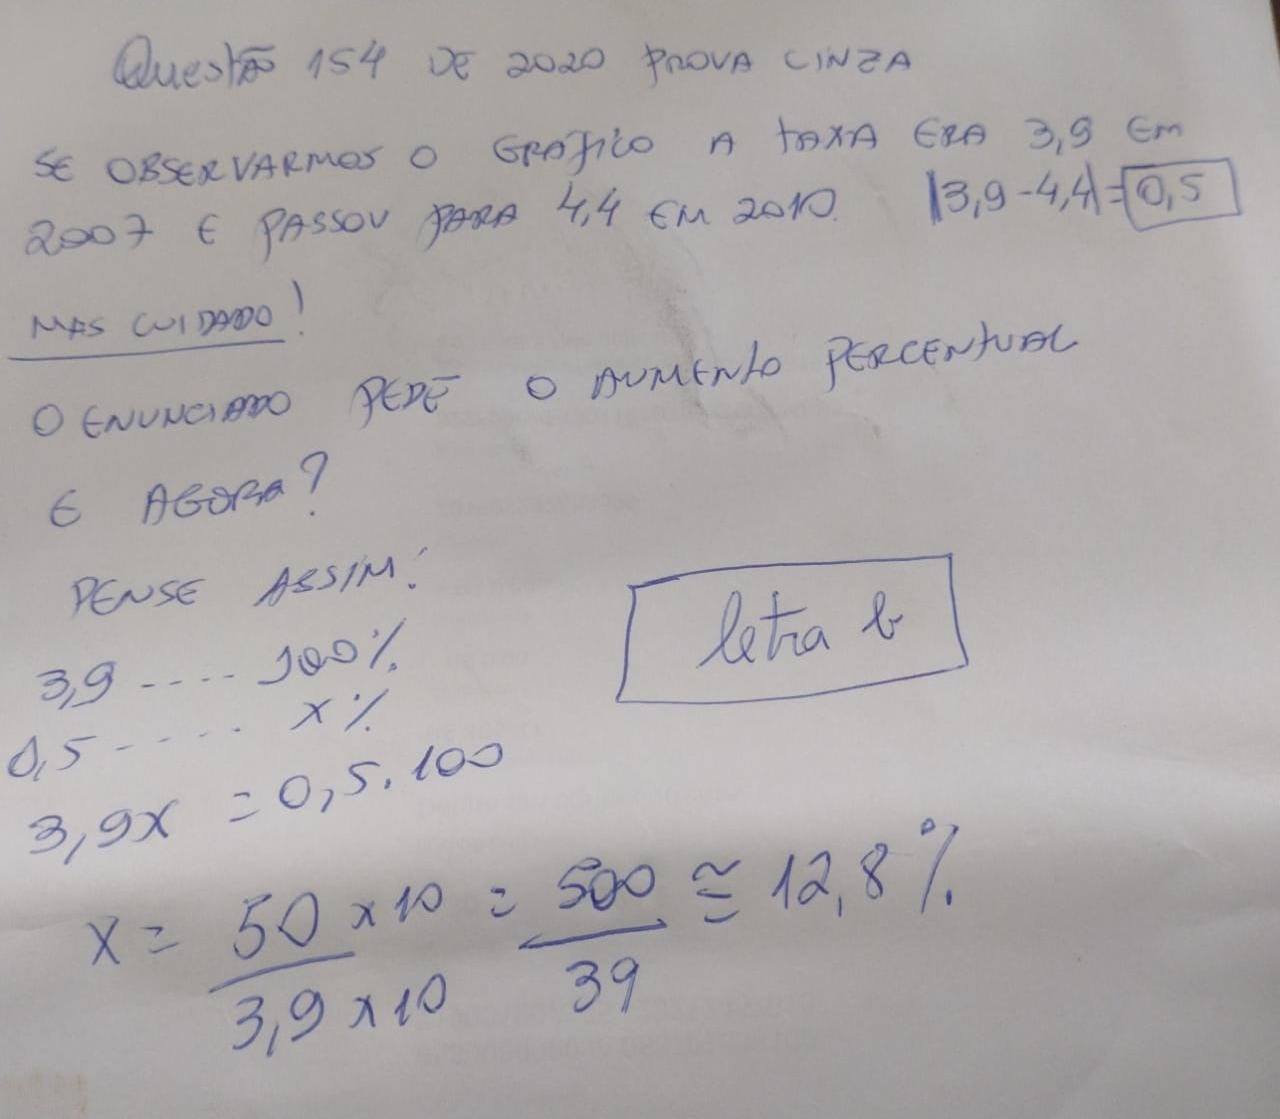 Questão 154 DE 2020 PROVA CINZA
SE OBSERVARMOS O GRÁFICO A TAXA ERA 3,9 EM
2007 E PASSOU PARA 4,4 EM 2010. |3,9-4,4|=0,5
MAS CUIDADO!
O ENUNCIADO PEDE O AUMENTO PERCENTUAL
E AGORA?
PENSE ASSIM:
3,9 ---- 100%
0,5 ----- x%
letra b
3,9x = 0,5.100
x = 50 x 10 / 3,9 x 10 = 500 / 39 ≅ 12,8%